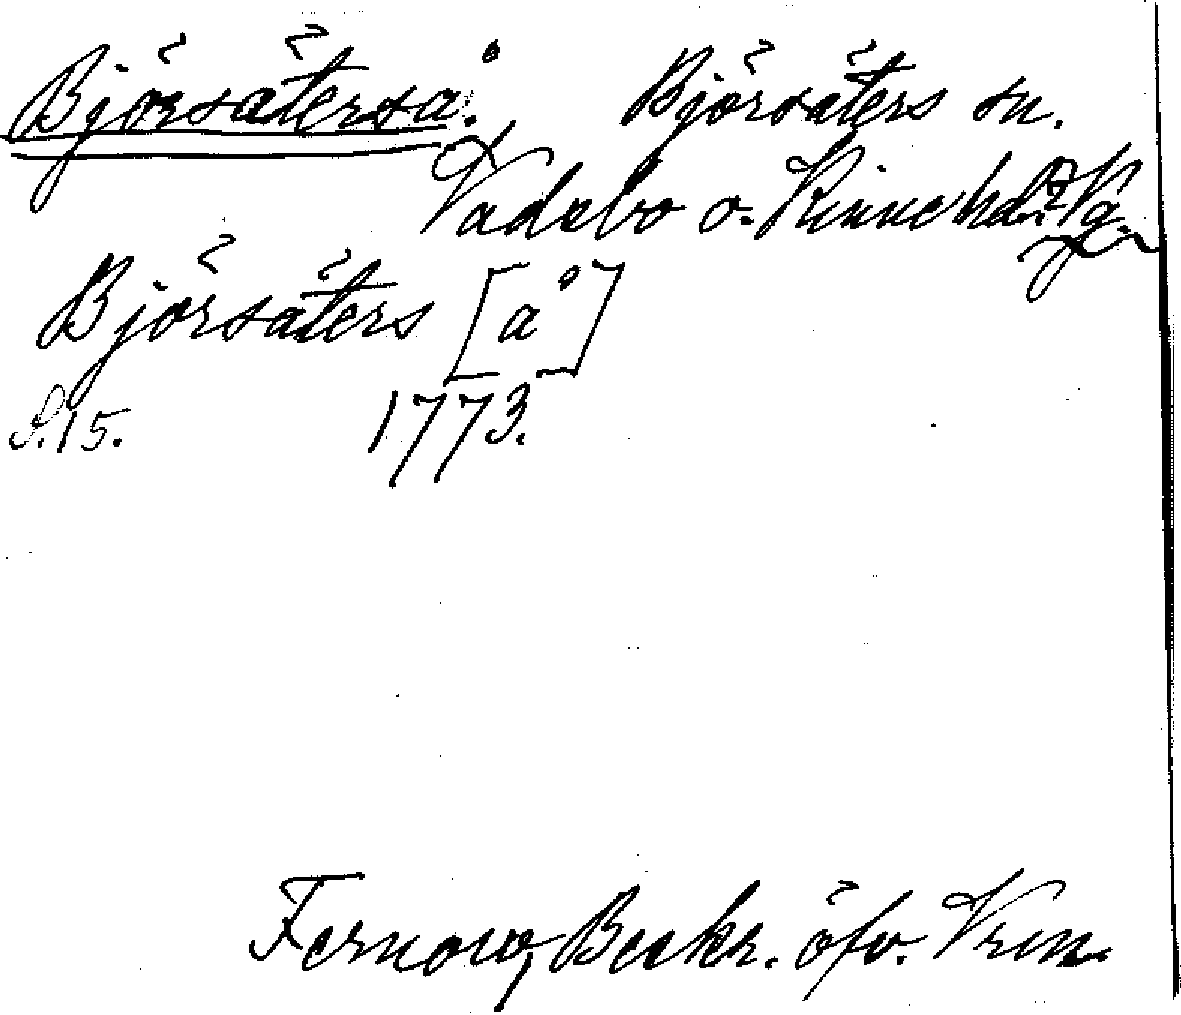 Björsäterså. Björsäters sn.
Vadsbo o. Kinne hd. Vg.
Björsäters [å]
S. 15. 1773.
Fernow, Beskr. öfv. Vrm.